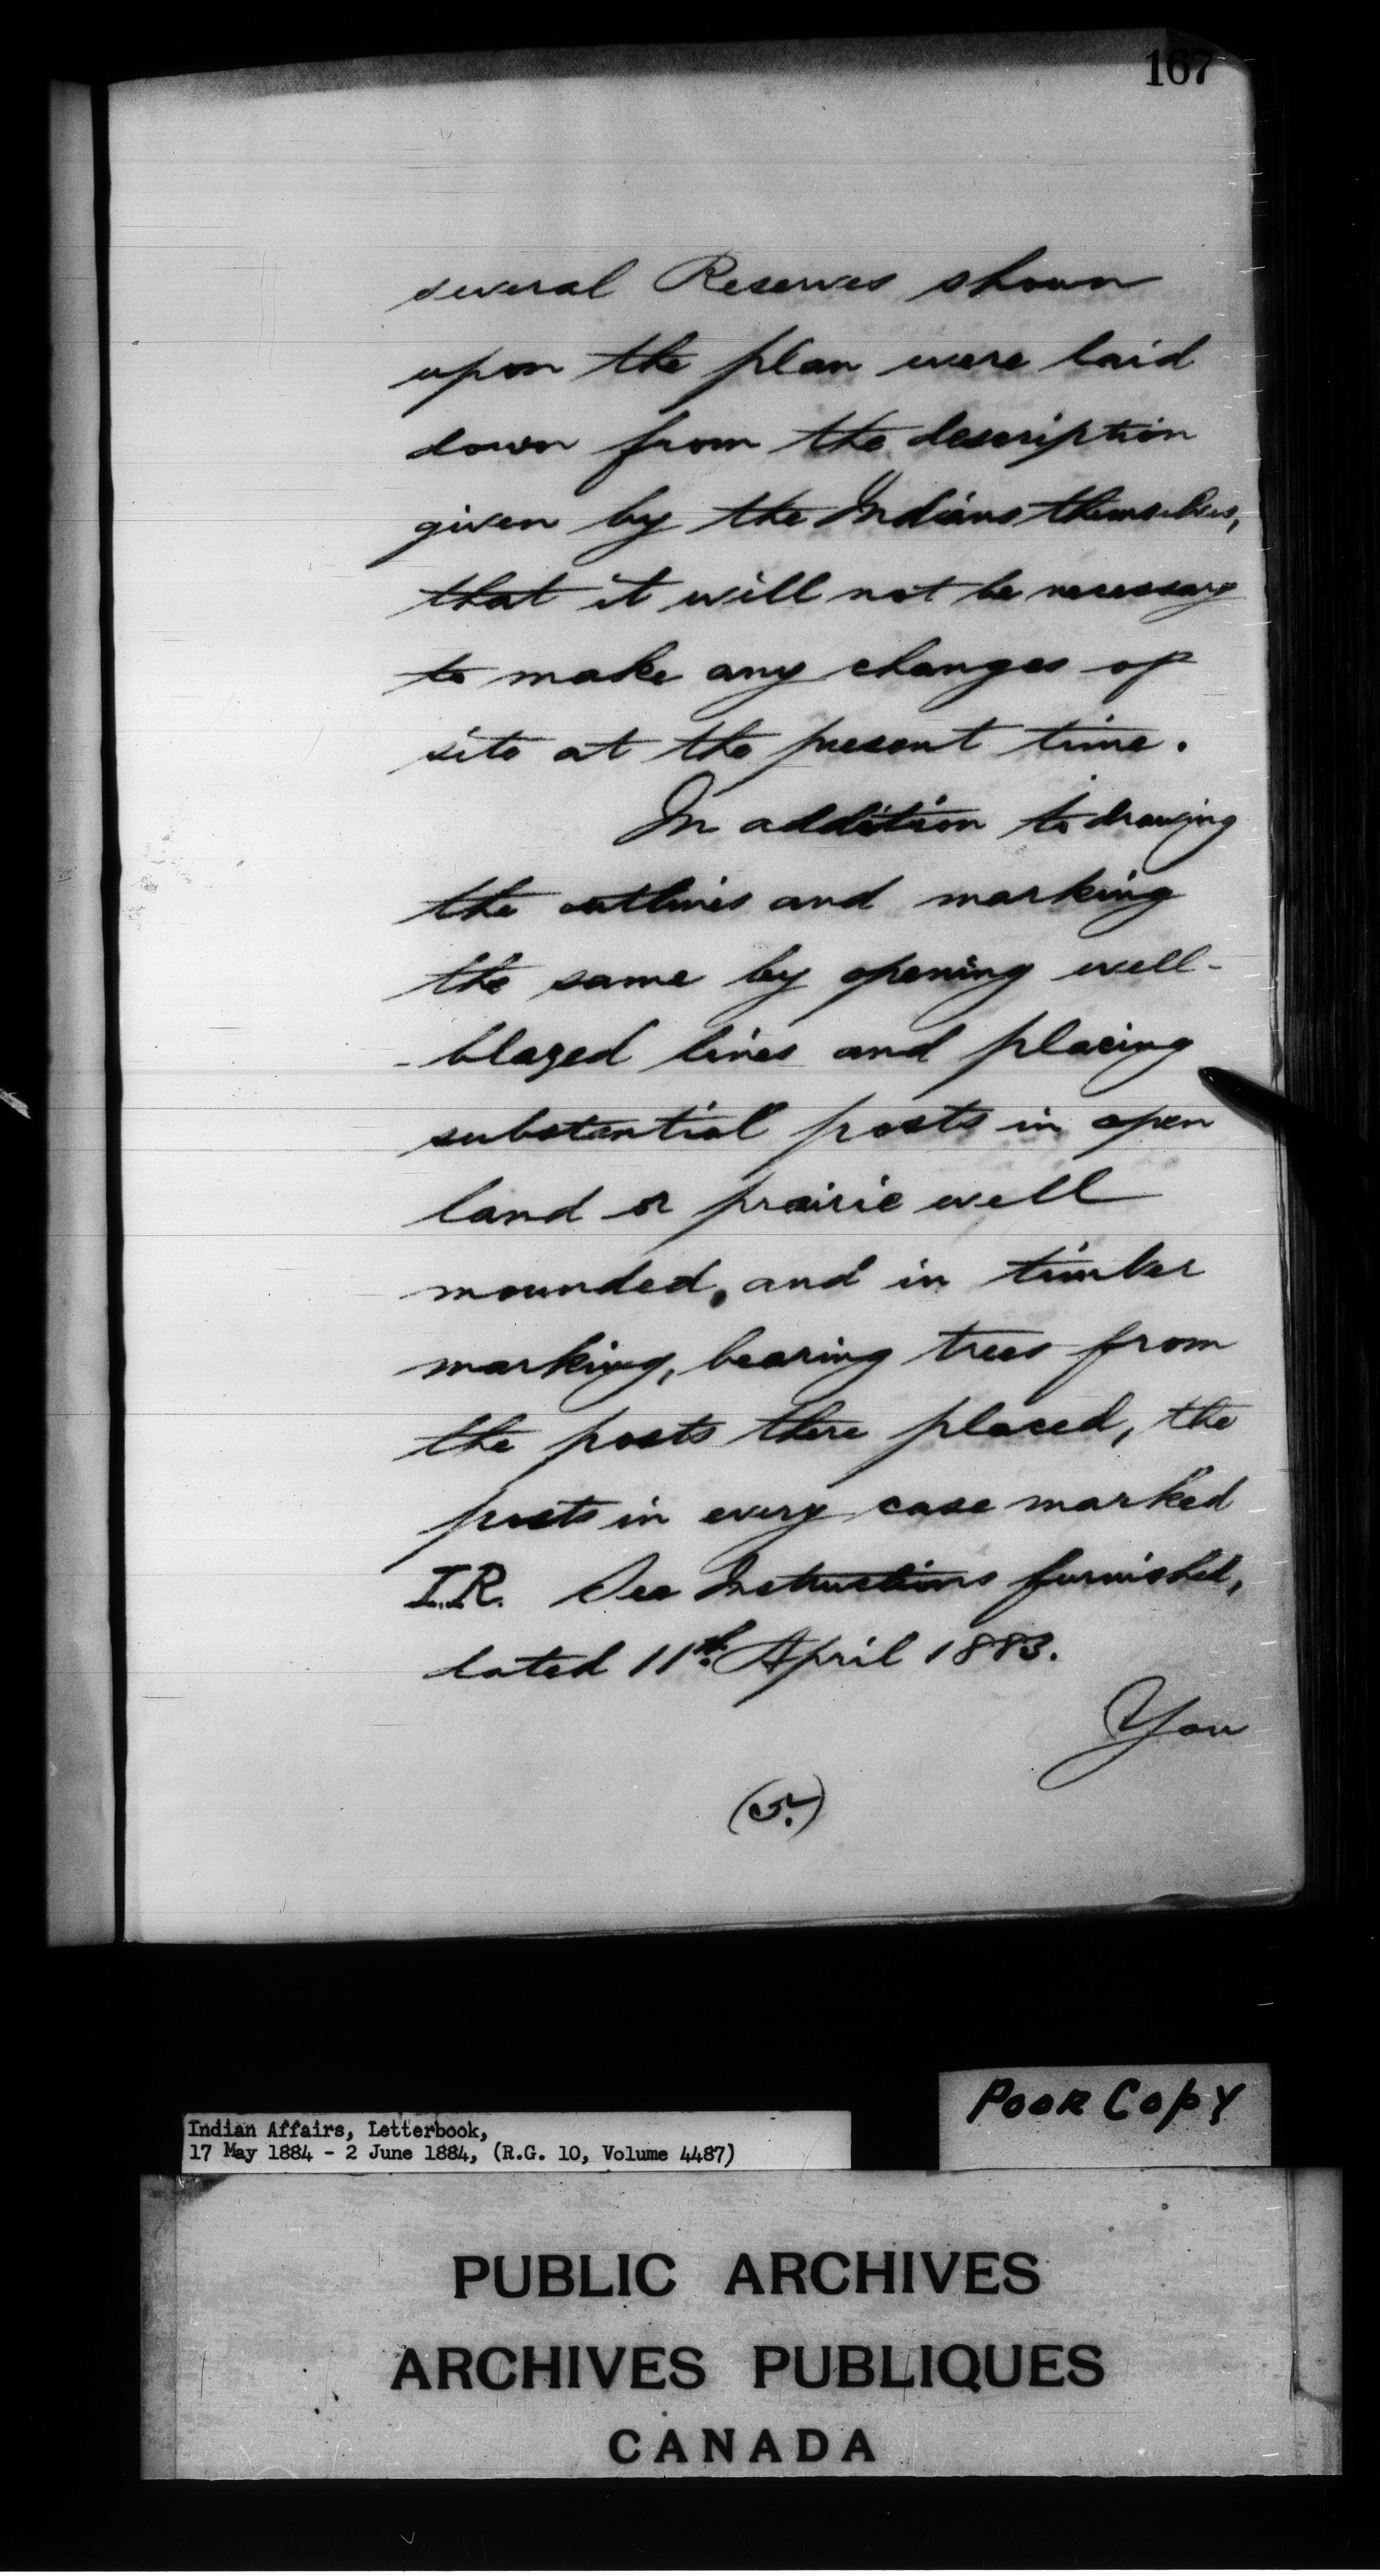 167
several Reserves shown
upon the plan were laid
down from the description
given by the Indians themselves,
that it will not be necessary
to make any changes of
site at the present time.
In addition to drawing
the outlines and marking
the same by opening well-
-blazed lines and placing
substantial posts in open
land or prairie well
mounded, and in timber
marking, bearing trees from
the posts there placed, the
posts in every case marked
I.R. See Instructions furnished,
dated 11th. April 1883.
You
(5.)
POOR COPY
Indian Affairs, Letterbook,
17 May 1884 - 2 June 1884, (R.G. 10, Volume 4487)
PUBLIC ARCHIVES
ARCHIVES PUBLIQUES
CANADA